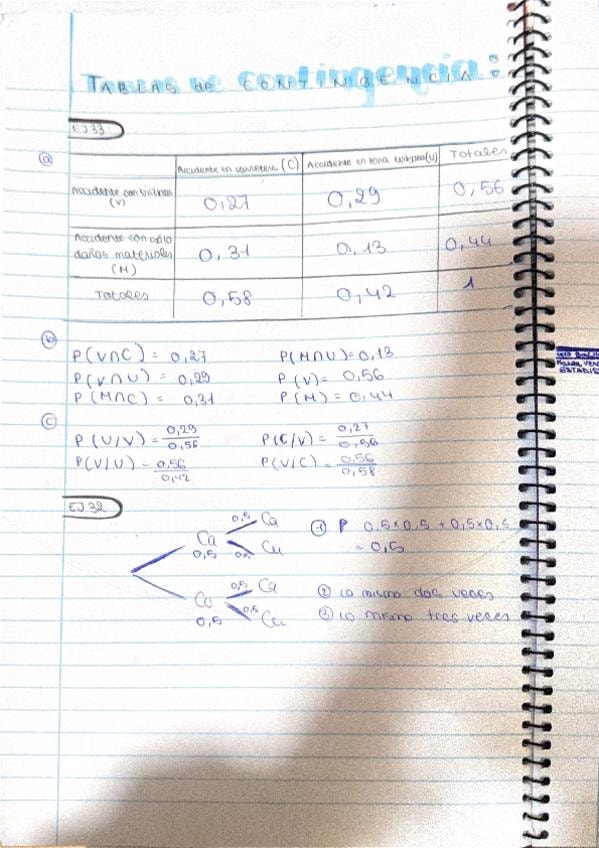 TABLAS de CONTINGENCIA:
EJ 33:
a
Accidente en carretera (C) Accidente en zona urbana (U) Totales
Accidente con víctimas (V) 0,27 0,29 0,56
Accidente con sólo daños materiales (M) 0,31 0,13 0,44
Totales 0,58 0,42 1
b
P(V∩C) = 0,27 P(M∩U) = 0,13
P(V∩U) = 0,29 P(V) = 0,56
P(M∩C) = 0,31 P(M) = 0,44
c
P(U/V) = 0,29/0,56 P(C/V) = 0,27/0,56
P(V/U) = 0,56/0,42 P(V/C) = 0,56/0,58
EJ 32
0,5 Ca
Ca 0,5 0,5 Cu
1 P 0,5×0,5 + 0,5×0,5
= 0,5
0,5 Ca
Cu 0,5 0,5 Cu
2 lo mismo dos veces
3 lo mismo tres veces